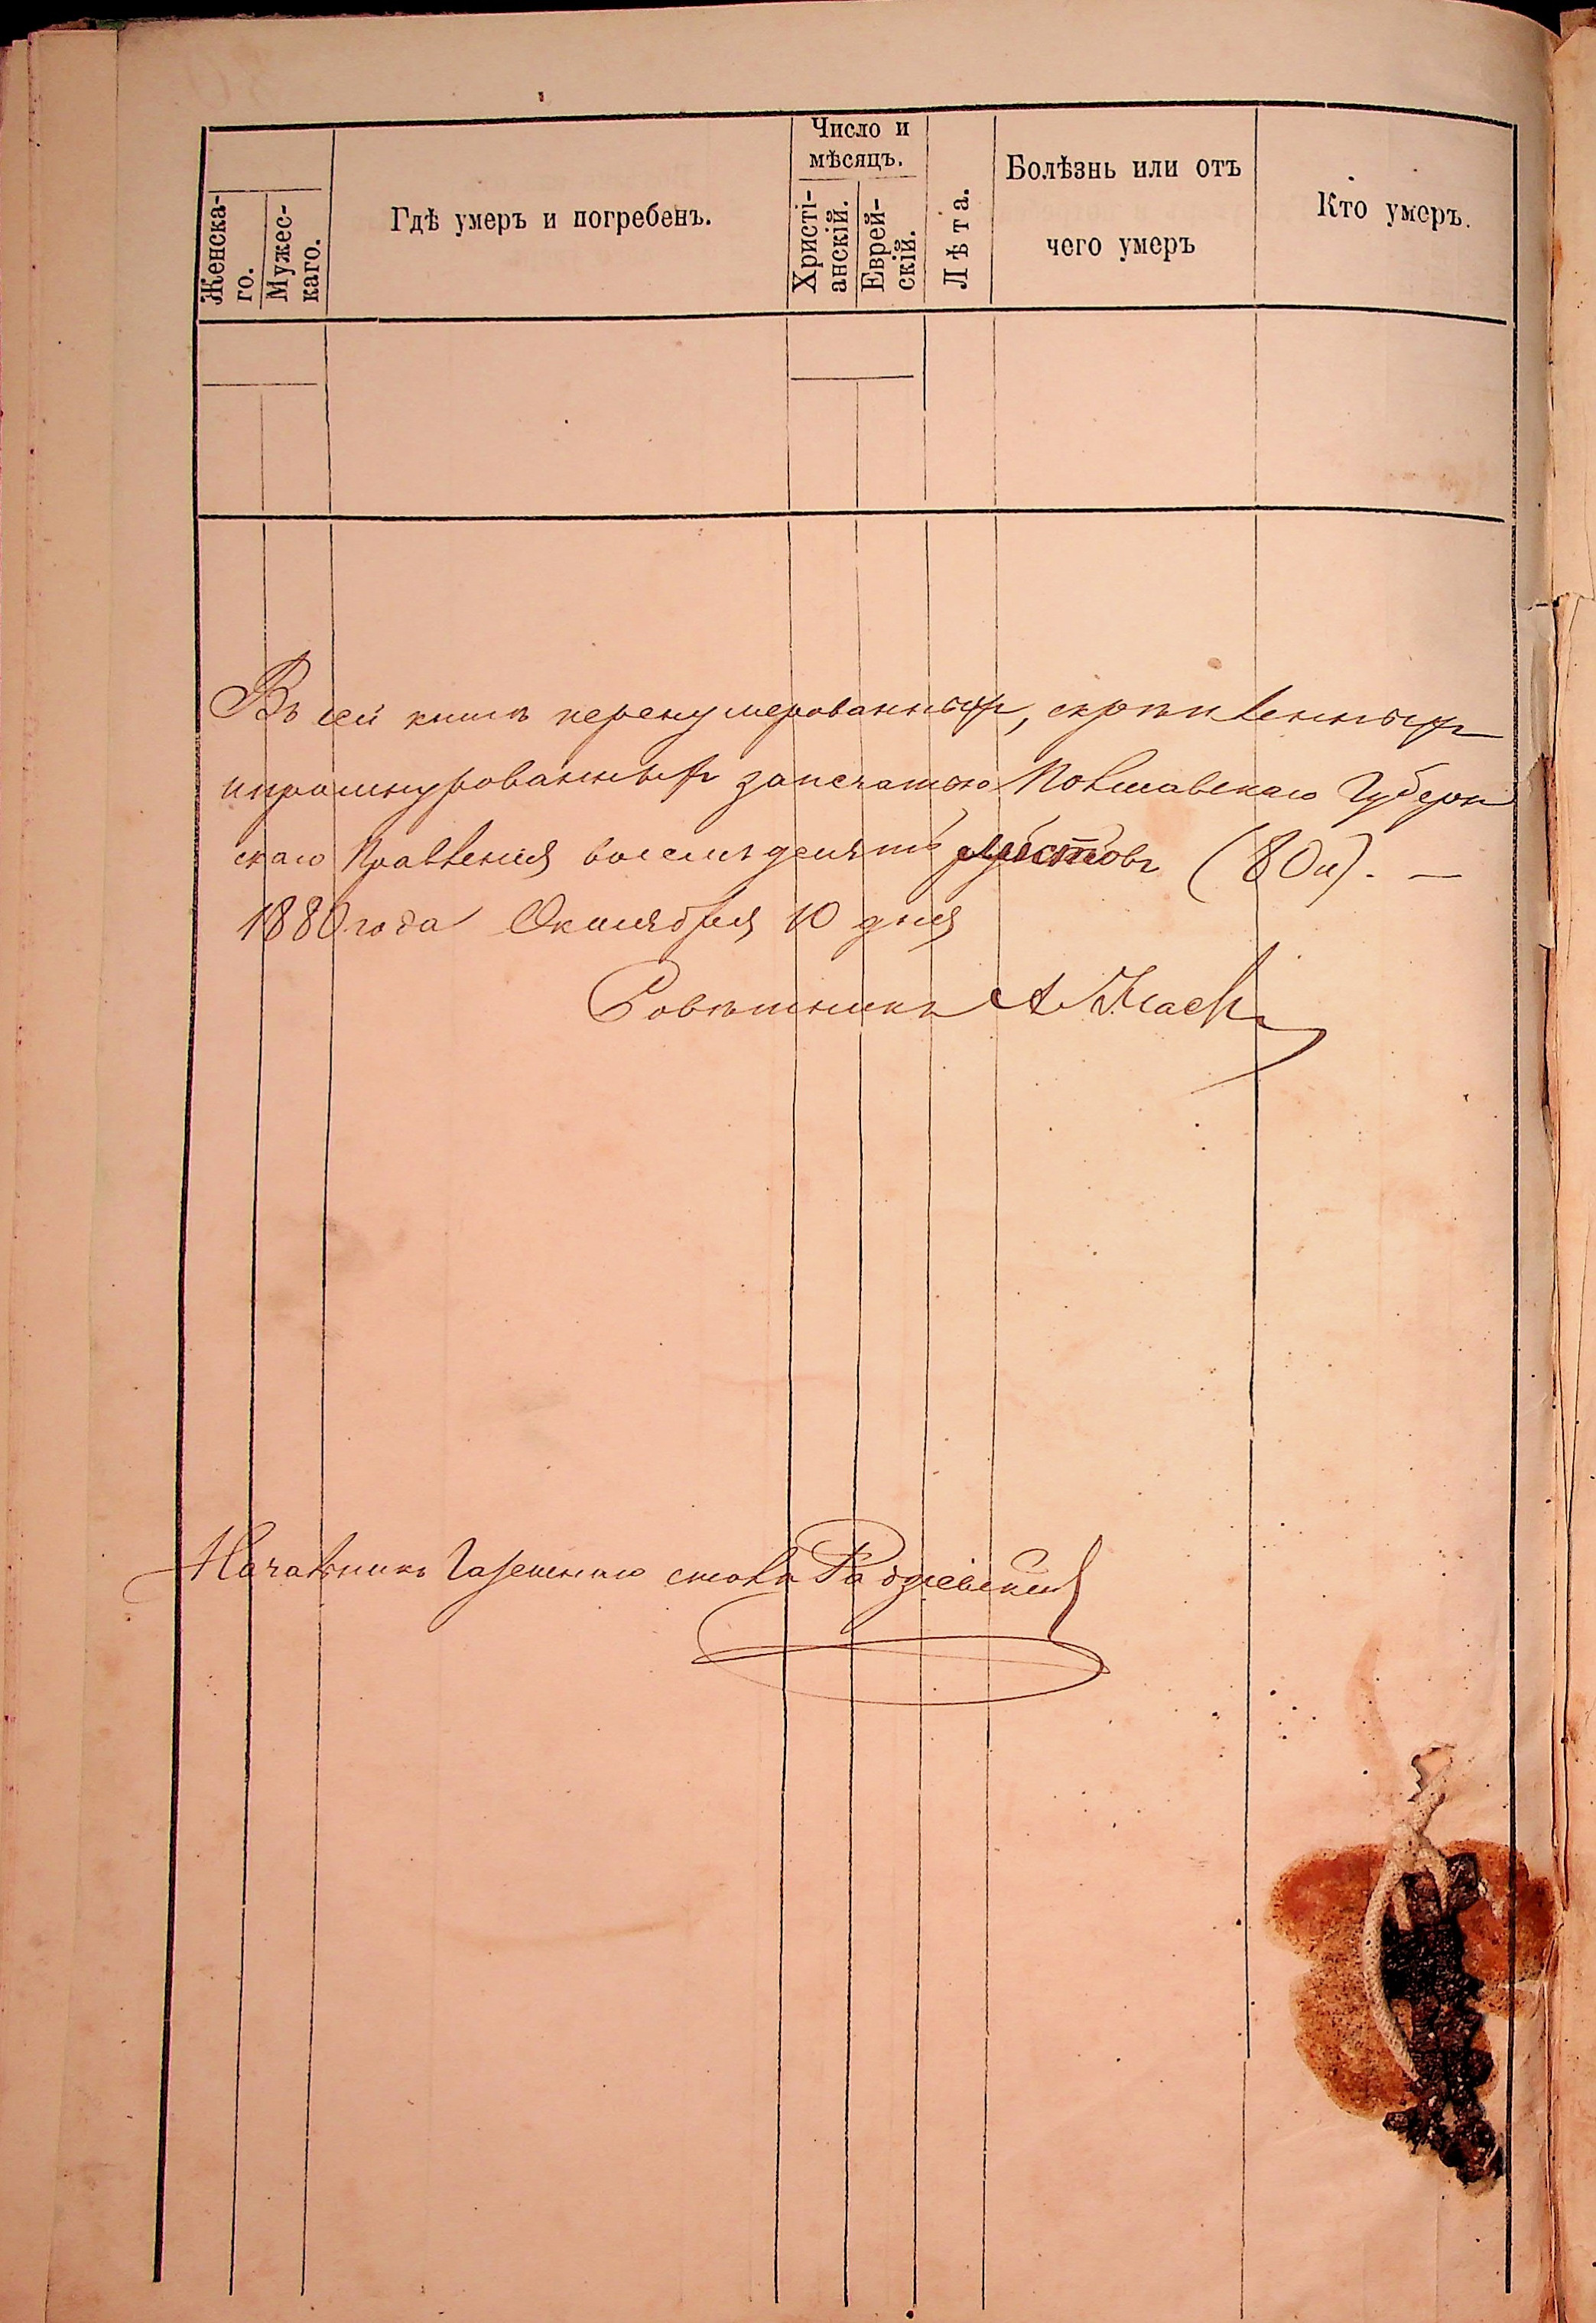 Женска-
го.
Мужес-
каго.
Гдѣ умеръ и погребенъ.
Число и
мѣсяцъ.
Христі-
анскій.
Еврей-
скій.
Лѣта.
Болѣзнь или отъ
чего умеръ
Кто умеръ.
Въ сей книгѣ перенумерованныхъ, скрѣпленныхъ
и прошнурованныхъ за печатью Полтавскаго Губерн
скаго Правленія восемьдесятъ листовъ (80 л). —
1880 года Октября 10 дня
Совѣтникъ А.
Начальникъ Газетнаго стола